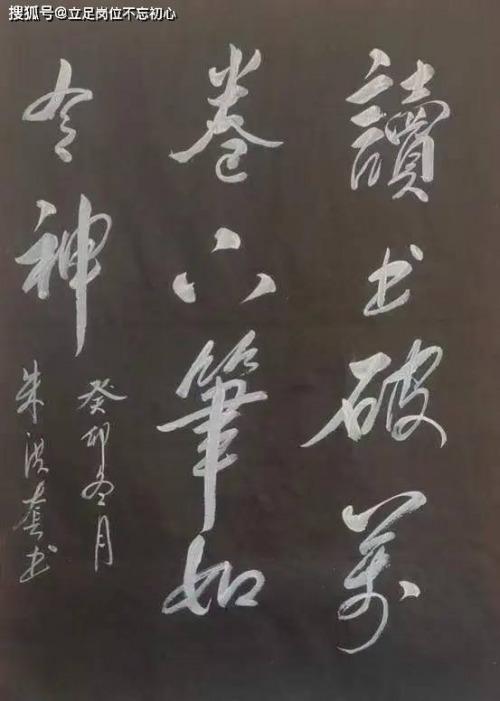 搜狐号@立足岗位不忘初心
讀书破萬
卷下筆如
有神
癸卯冬月
朱洪书